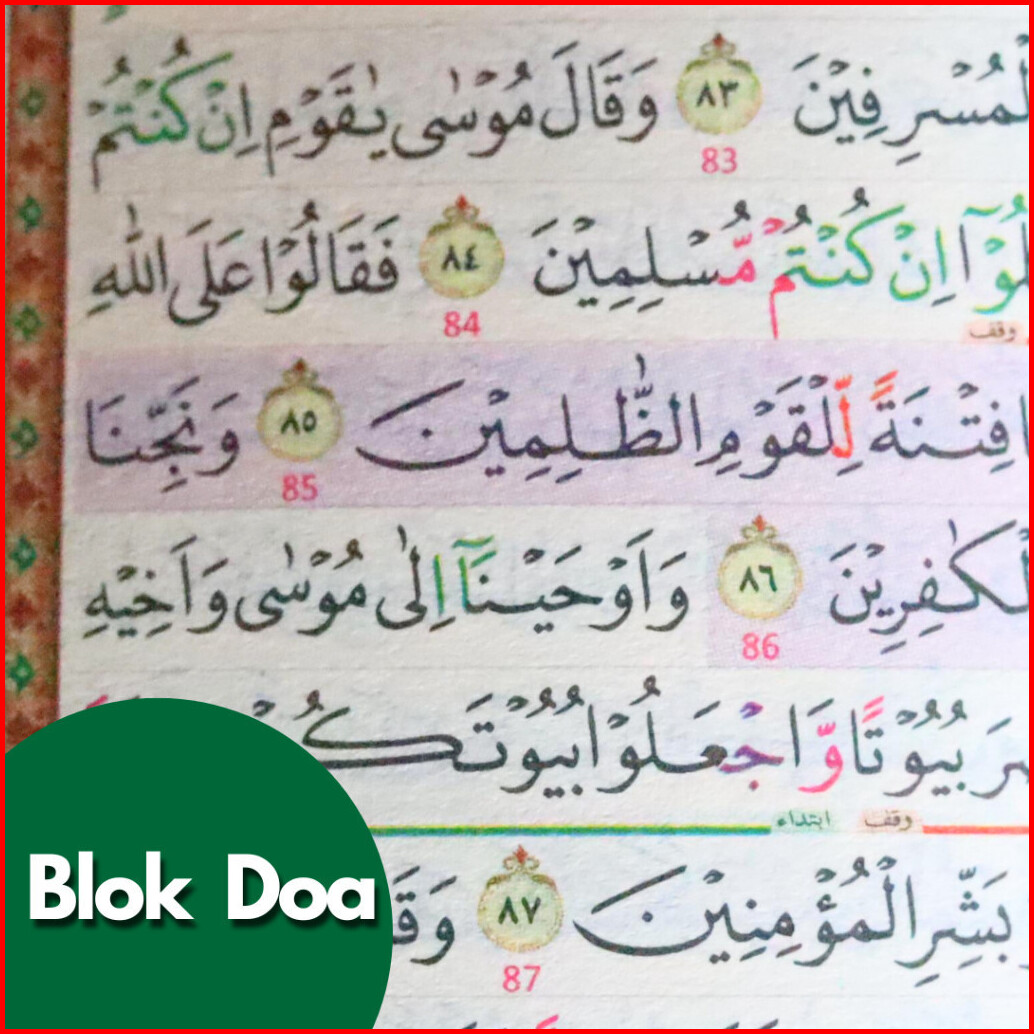 لْمُسْرِفِيْنَ ٨٣ وَقَالَ مُوْسٰى يٰقَوْمِ اِنْ كُنْتُمْ
83
لُوْٓا اِنْ كُنْتُمْ مُّسْلِمِيْنَ ٨٤ فَقَالُوْا عَلَى اللّٰهِ
84
وقف
فِتْنَةً لِّلْقَوْمِ الظّٰلِمِيْنَ ٨٥ وَنَجِّنَا
85
لْكٰفِرِيْنَ ٨٦ وَاَوْحَيْنَآ اِلٰى مُوْسٰى وَاَخِيْهِ
86
رَ بُيُوْتًا وَّاجْعَلُوْا بُيُوْتَكُ
وقف ابتداء
بَشِّرِ الْمُؤْمِنِيْنَ ٨٧ وَقَ
87
Blok Doa